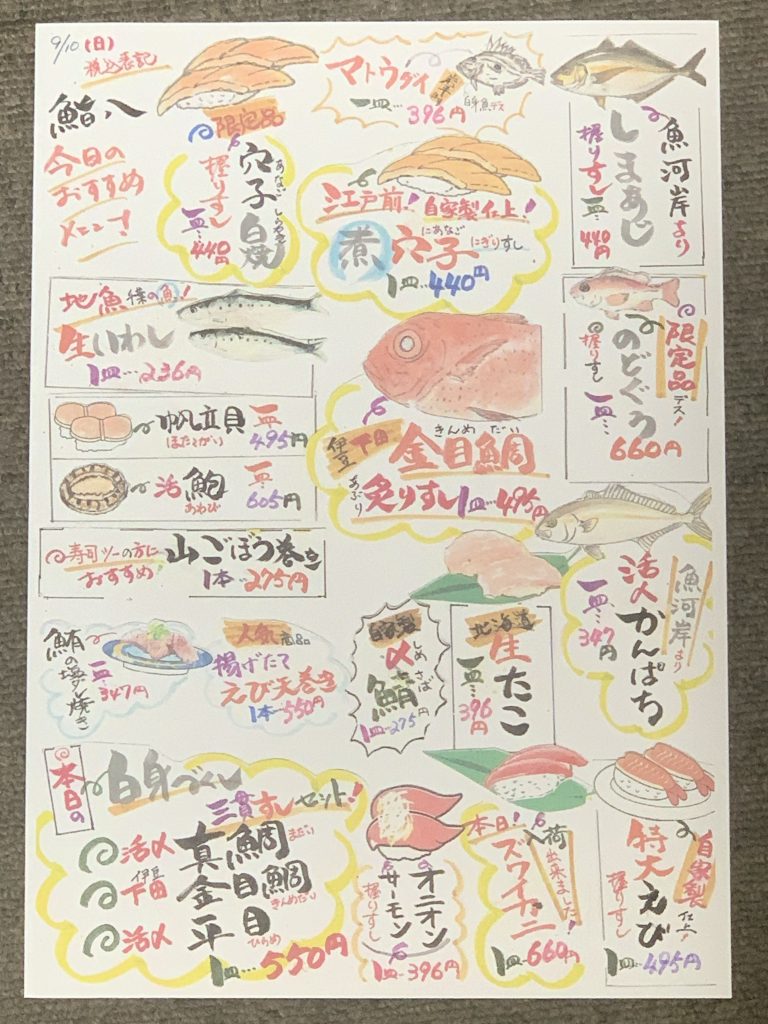 9/10(日)
税込表記
鮨八
今日の
おすすめ
メニュー!
限定品
穴子白焼
あなご しらやき
握りすし
一皿…440円
マトウダイ
一皿…396円
白身魚デス
魚河岸より
しまあじ
握りすし
一皿…440円
江戸前!自家製仕上!
煮穴子
にあなご
にぎりすし
1皿…440円
地魚
生いわし
1皿…236円
限定品デス!
のどぐろ
握りすし
一皿…
660円
帆立貝
ほたてがい
一皿
495円
活鮑
あわび
一皿
605円
伊豆下田
金目鯛
きんめだい
炙りすし
あぶり
1皿…495円
寿司ツーの方に
おすすめ!
山ごぼう巻き
1本…275円
魚河岸より
活〆かんぱち
一皿…347円
鮪の塩たれ焼き
一皿…347円
人気商品
揚げたて
えび天巻き
1本…550円
自家製
〆鯖
しめさば
1皿…275円
北海道
生たこ
一皿…396円
本日の
白身づくし
三貫すしセット!
活〆 真鯛 まだい
伊豆下田 金目鯛 きんめだい
活〆 平目 ひらめ
1皿…550円
オニオン
サーモン
握りすし
1皿…396円
本日!
入荷出来ました!
ズワイガニ
1皿…660円
自家製仕上!
特大えび
握りすし
1皿…495円